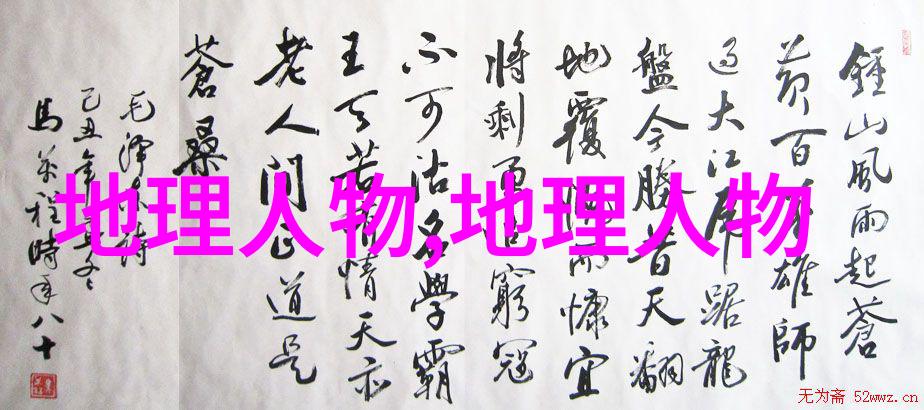 鍾山風雨起蒼
黄百万雄師
过大江虎踞龍
盤今勝昔天翻
地覆慨而慷宜
将剩勇追窮寇
不可沽名學霸
王天若有情天亦
老人間正道是
蒼桑
毛澤东詩
己丑年冬
馬萬程時年八十
地理人物,地理人物
无为斋 52wwz.cn